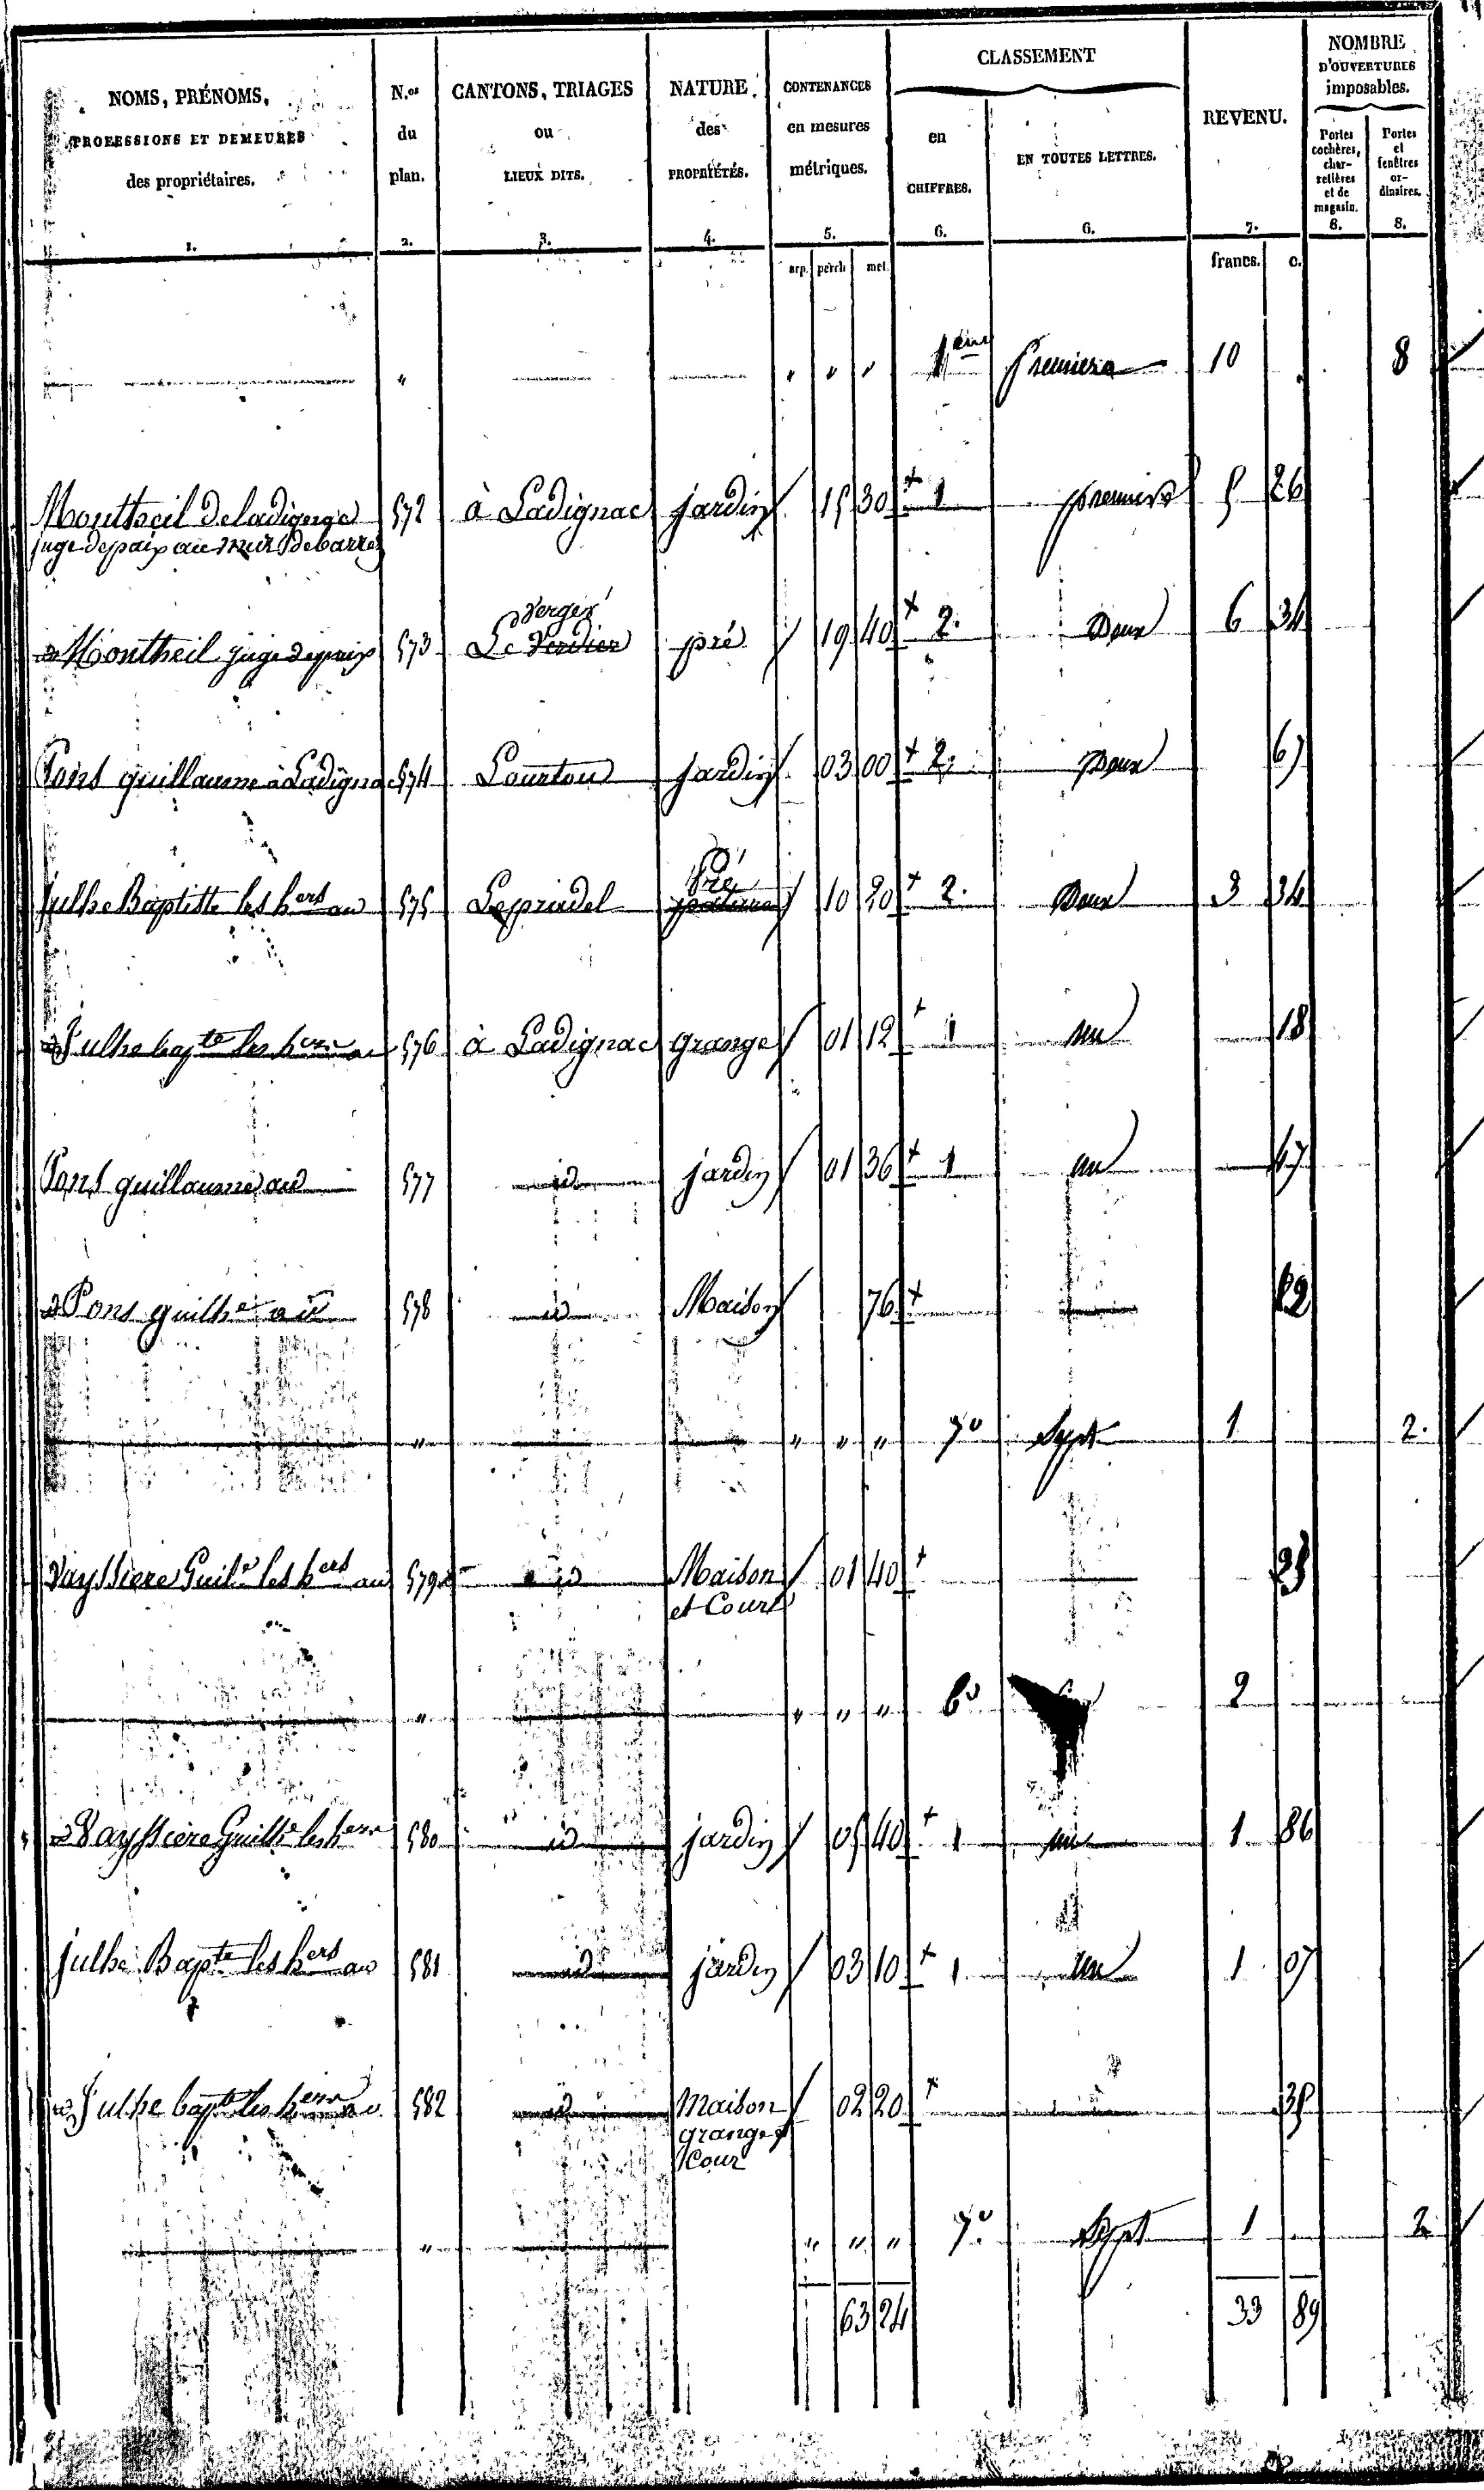 NOMS, PRÉNOMS, PROFESSIONS ET DEMEURES des propriétaires. 1.
N.os du plan. 2.
CANTONS, TRIAGES ou LIEUX DITS. 3.
NATURE des PROPRIÉTÉS. 4.
CONTENANCES en mesures métriques. 5.
CLASSEMENT
en CHIFFRES. 6.
EN TOUTES LETTRES. 6.
REVENU. 7.
NOMBRE D'OUVERTURES imposables.
Portes cochères, charretières et de magasin. 8.
Portes et fenêtres ordinaires. 8.
arp. perch. met. francs. c.
" " " " 1ere Premiere 10 8
Montheil de ladigerge 572 à Ladignac jardin 15 30 + 1 premiere 5 26
juge de paix au mur de barrez
id Montheil juge de paix 573 Le Verdier verger pré 19 40 + 2. Deux 6 34
Pons guillaume à Ladignac 574 Lourtou jardin 03 00 + 2. Deux 67
julhe Baptiste les hers au 575 Lepradel pature Pré 10 20 + 2. Deux 3 34
id Julhe bapte les hers au 576 à Ladignac grange 01 12 + 1 un 18
Pons guillaume au 577 id jardin 01 36 + 1 un 47
id Pons guilhe au id 578 id Maison 76 +
" " " " 7e Sept 1 2.
Vayssiere Guile les hers au 579 id Maison 01 40 +
et Cour
" " " " 6e 2
id Vayssiere Guilhe les hers 580 id jardin 05 40 + 1 un 1 86
julhe Bapte les hers au 581 id jardin 03 10 + 1 un 1 07
id Julhe bapte les hers au 582 id Maison 02 20 + 35
grange
Cour
" " " " 7e Sept 1 2
63 24 33 89